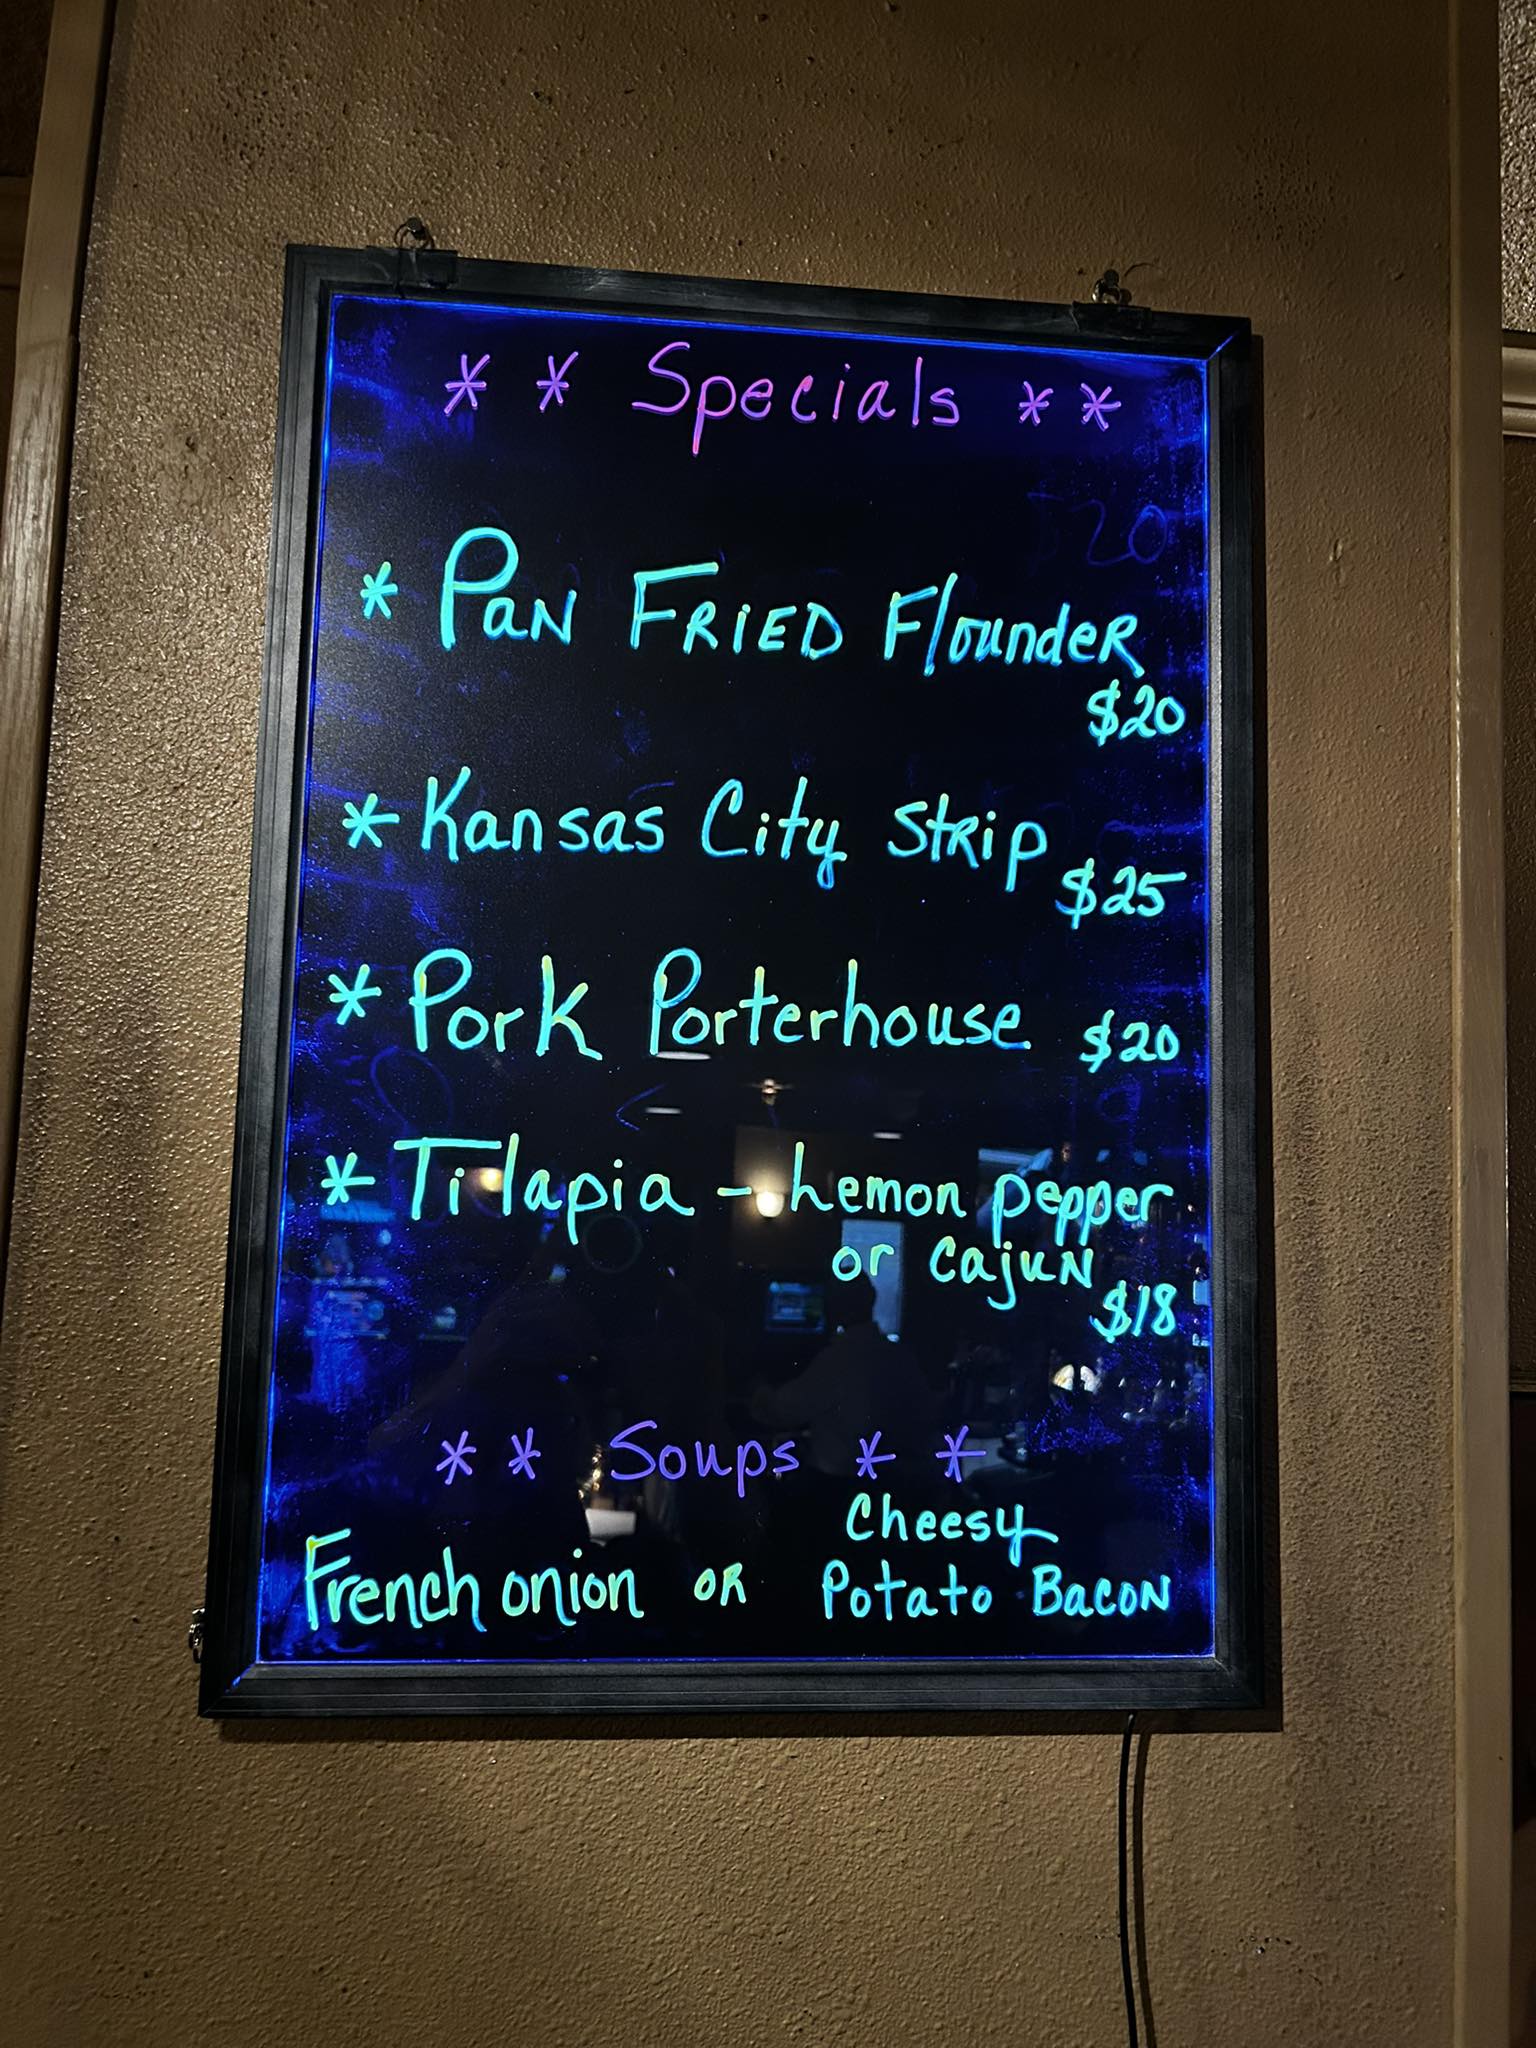 * * Specials * *
* Pan Fried Flounder
$20
* Kansas City Strip
$25
* Pork Porterhouse $20
* Tilapia - Lemon pepper
or Cajun
$18
* * Soups * *
Cheesy
French onion or Potato Bacon